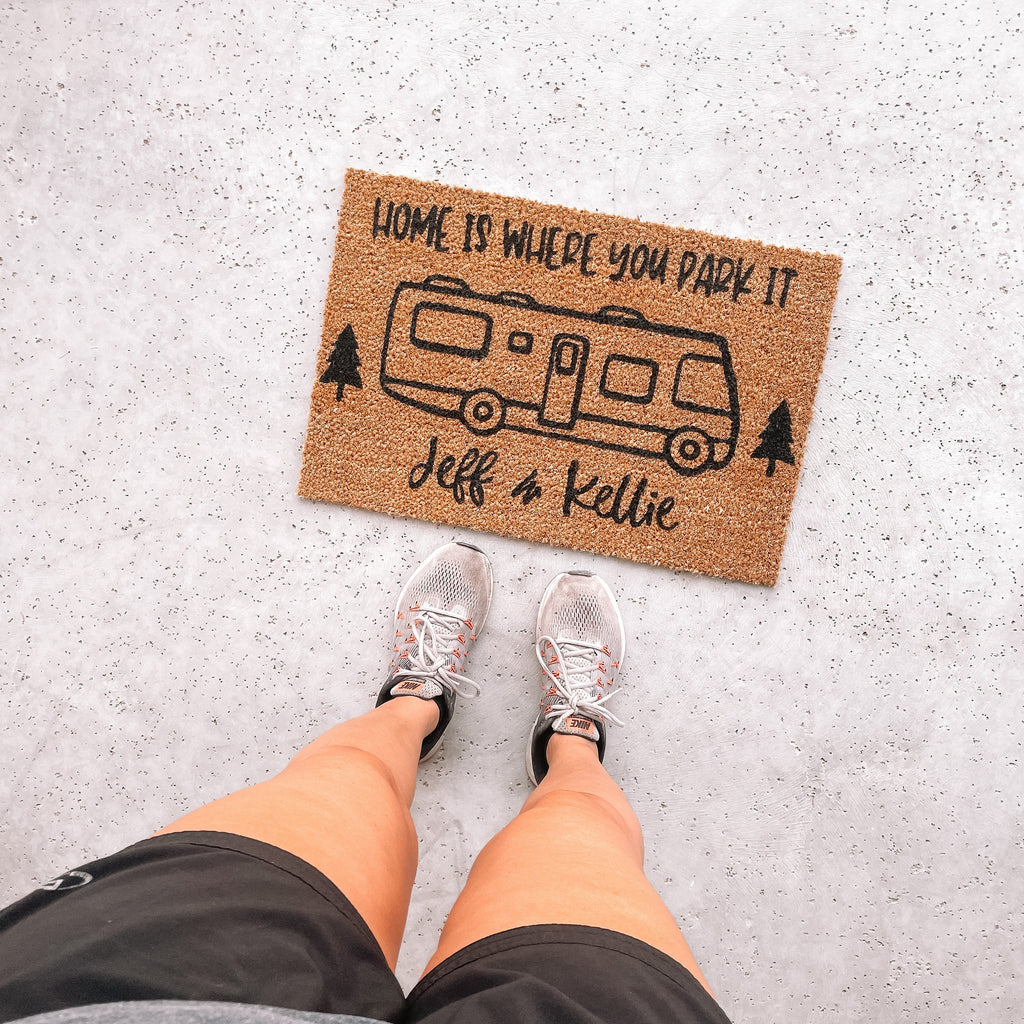 HOME IS WHERE YOU PARK IT
Jeff & Kellie
NIKE
NIKE